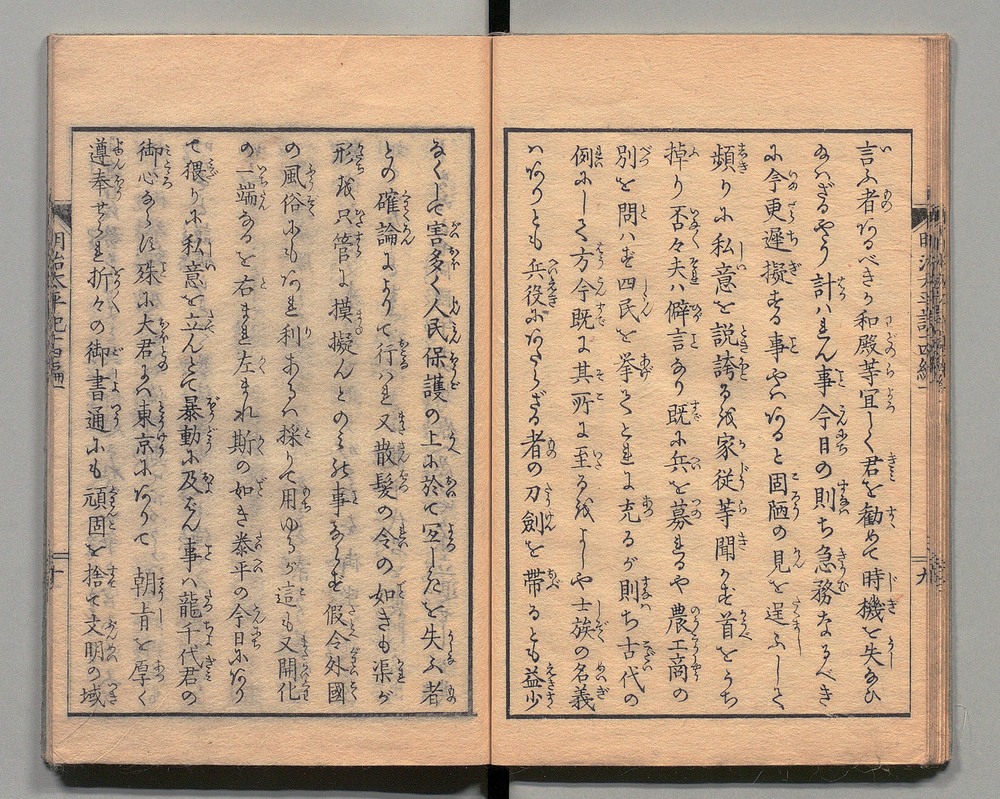 言ふ者あるべきか和殿等宜しく君を勧めて時機を失なひ
給ハざるやう計ハれん事今日の則ち急務なるべき
に今更遅擬する事やハあると固陋の見を逞ふして
頻りに私意を説誇るを家従等聞かず首をうち
掉り否々夫ハ僻言なり既に兵を募るゝや農工商の
別を問ハず四民を挙てこれに充るが則ち古代の
例にして方今既に其所に至るをよしや士族の名義
ハありとも兵役にあたらざる者の刀劍を帯るとも益少
なくして害多く人民保護の上に於て宜しきを失ふ者
との確論によりて行ハれ又散髪の令の如きも渠が
形を只管に摸擬んとのミの事ならず假令外國
の風俗にもあれ利あるハ採りて用ゆるが這も又開化
の一端なるを右まれ左まれ斯の如き泰平の今日にあり
て猥りに私意を立んとて暴動に及ばん事ハ龍千代君の
御心ならず殊に大君にハ東京にありて朝旨を厚く
遵奉せられ折々の御書通にも頑固を捨て文明の域
明治太平記十四編
十